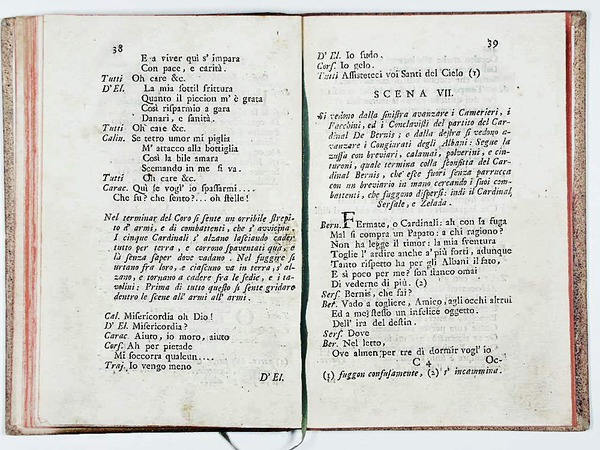 38
E a viver quì s' impara
Con pace, e carità.
Tutti Oh care &c.
D' El. La mia sottil frittura
Quanto il piccion m' è grata
Così risparmio a gara
Danari, e sanità.
Tutti Oh care &c.
Calin. Se tetro umor mi piglia
M' attacco alla bottiglia
Così la bile amara
Scemando in me si va.
Tutti Oh care &c.
Carac. Quì se vogl' io spassarmi....
Che fu? che sento?... oh stelle!
Nel terminar del Coro si sente un orribile strepi-
to d' armi, e di combattenti, che s' avvicina.
I cinque Cardinali s' alzano lasciando cader
tutto per terra, e corrono spaventati quà, e
là senza saper dove vadano. Nel fuggire si
urtano fra loro, e ciascuno va in terra, s' al-
zano, e tornano a cadere fra le sedie, e i ta-
volini: Prima di tutto questo si sente gridare
dentro le scene all' armi all' armi.
Cal. Misericordia oh Dio!
D' El. Misericordia?
Carac. Aiuto, io moro, aiuto
Cors. Ah per pietade
Mi soccorra qualcun....
Traj. Io vengo meno
D' El.
39
D' El. Io sudo.
Cors. Io gelo.
Tutti Assisteteci voi Santi del Cielo (1)
SCENA VII.
Si vedono dalla sinistra avanzare i Camerieri, i
Facchini, ed i Conclavisti del partito del Car-
dinal De Bernis; e dalla destra si vedono a-
vanzare i Congiurati degli Albani: Segue la
zuffa con breviari, calamai, polverini, e cin-
turoni, quale termina colla sconfitta del Car-
dinal Bernis, che esce fuori senza parrucca
con un breviario in mano cercando i suoi com-
battenti, che fuggono dispersi: indi il Cardinal
Sersale, e Zelada.
Bern. Fermate, o Cardinali: ah con la fuga
Mal si compra un Papato: a chi ragiono?
Non ha legge il timor: la mia sventura
Toglie l' ardire anche a' più forti, adunque
Tanto rispetto ha per gli Albani il fato,
E sì poco per me? son stanco omai
Di vederne di più. (2)
Sers. Bernis, che fai?
Ber. Vado a togliere, Amico, agli occhi altrui
Ed a me stesso un infelice oggetto.
Dell' ira del destin.
Sers. Dove
Ber. Nel letto,
Ove almen per tre dì dormir vogl' io
C 4
Oc-
(1) fuggon confusamente, (2) s' incammina.